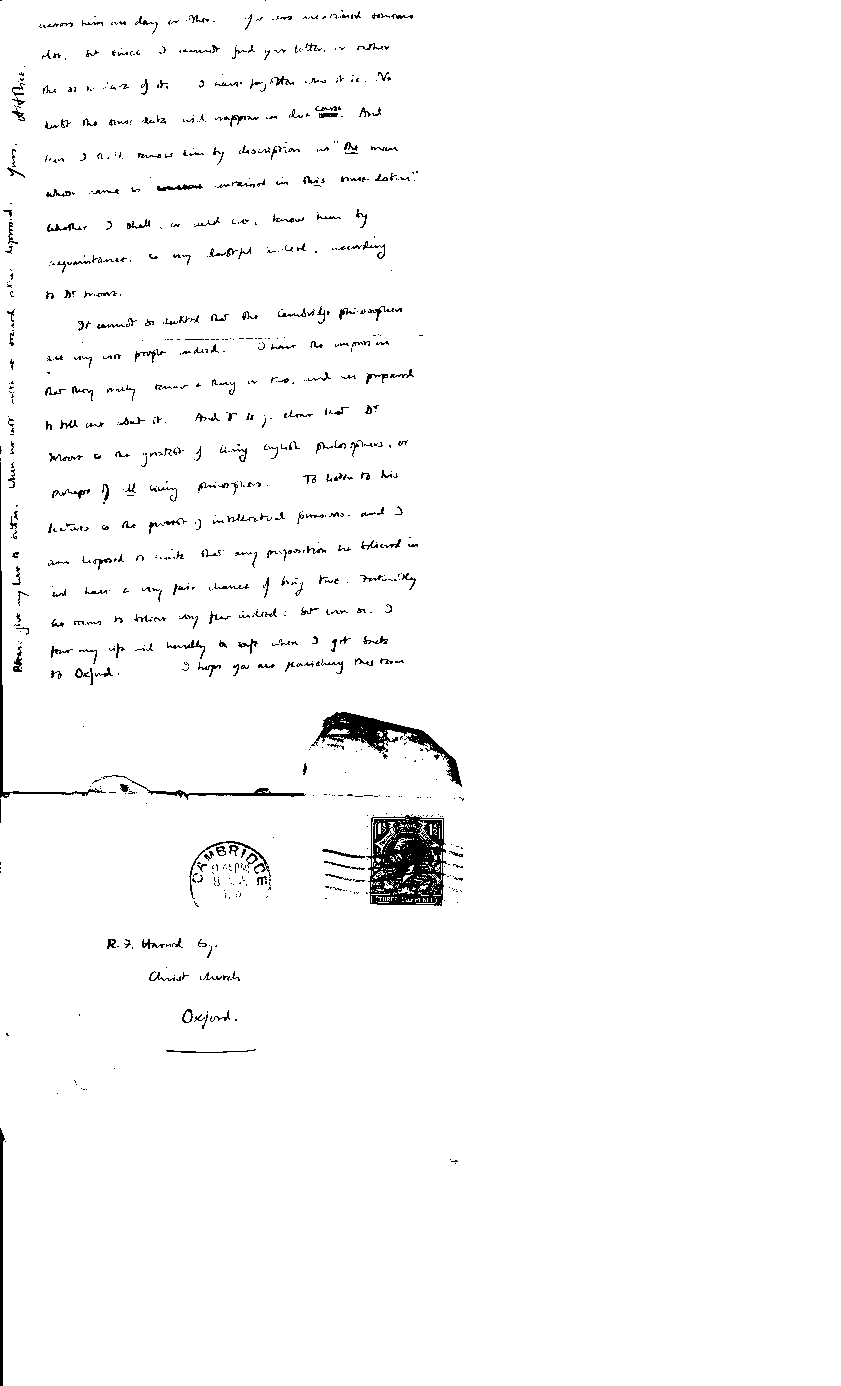 across him one day or other. You also mentioned someone
else, but since I cannot find your letter, or rather
the sense data of it, I have forgotten who it is. No
doubt the sense data will reappear in due course. And
then I shall know him by description as "the man
whose name is contained in this sense-datum."
Whether I shall, or could ever, know him by
acquaintance, is very doubtful indeed, according
to Dr Moore.
It cannot be doubted that the Cambridge philosophers
are very nice people indeed. I have the impression
that they really know a thing or two, and are prepared
to tell one about it. And it is clear that Dr
Moore is the greatest of living English philosophers, or
perhaps of all living philosophers. To listen to his
lectures is the purest of intellectual pleasures, and I
am disposed to think that any proposition he believed in
would have a very fair chance of being true. Fortunately
he seems to believe very few indeed: but even so, I
fear my life will hardly be safe when I get back
to Oxford. I hope you are flourishing this term
Please give my love to
Yours, H H Price.
CAMBRIDGE
R. F. Harrod Esq.
Christ Church
Oxford.